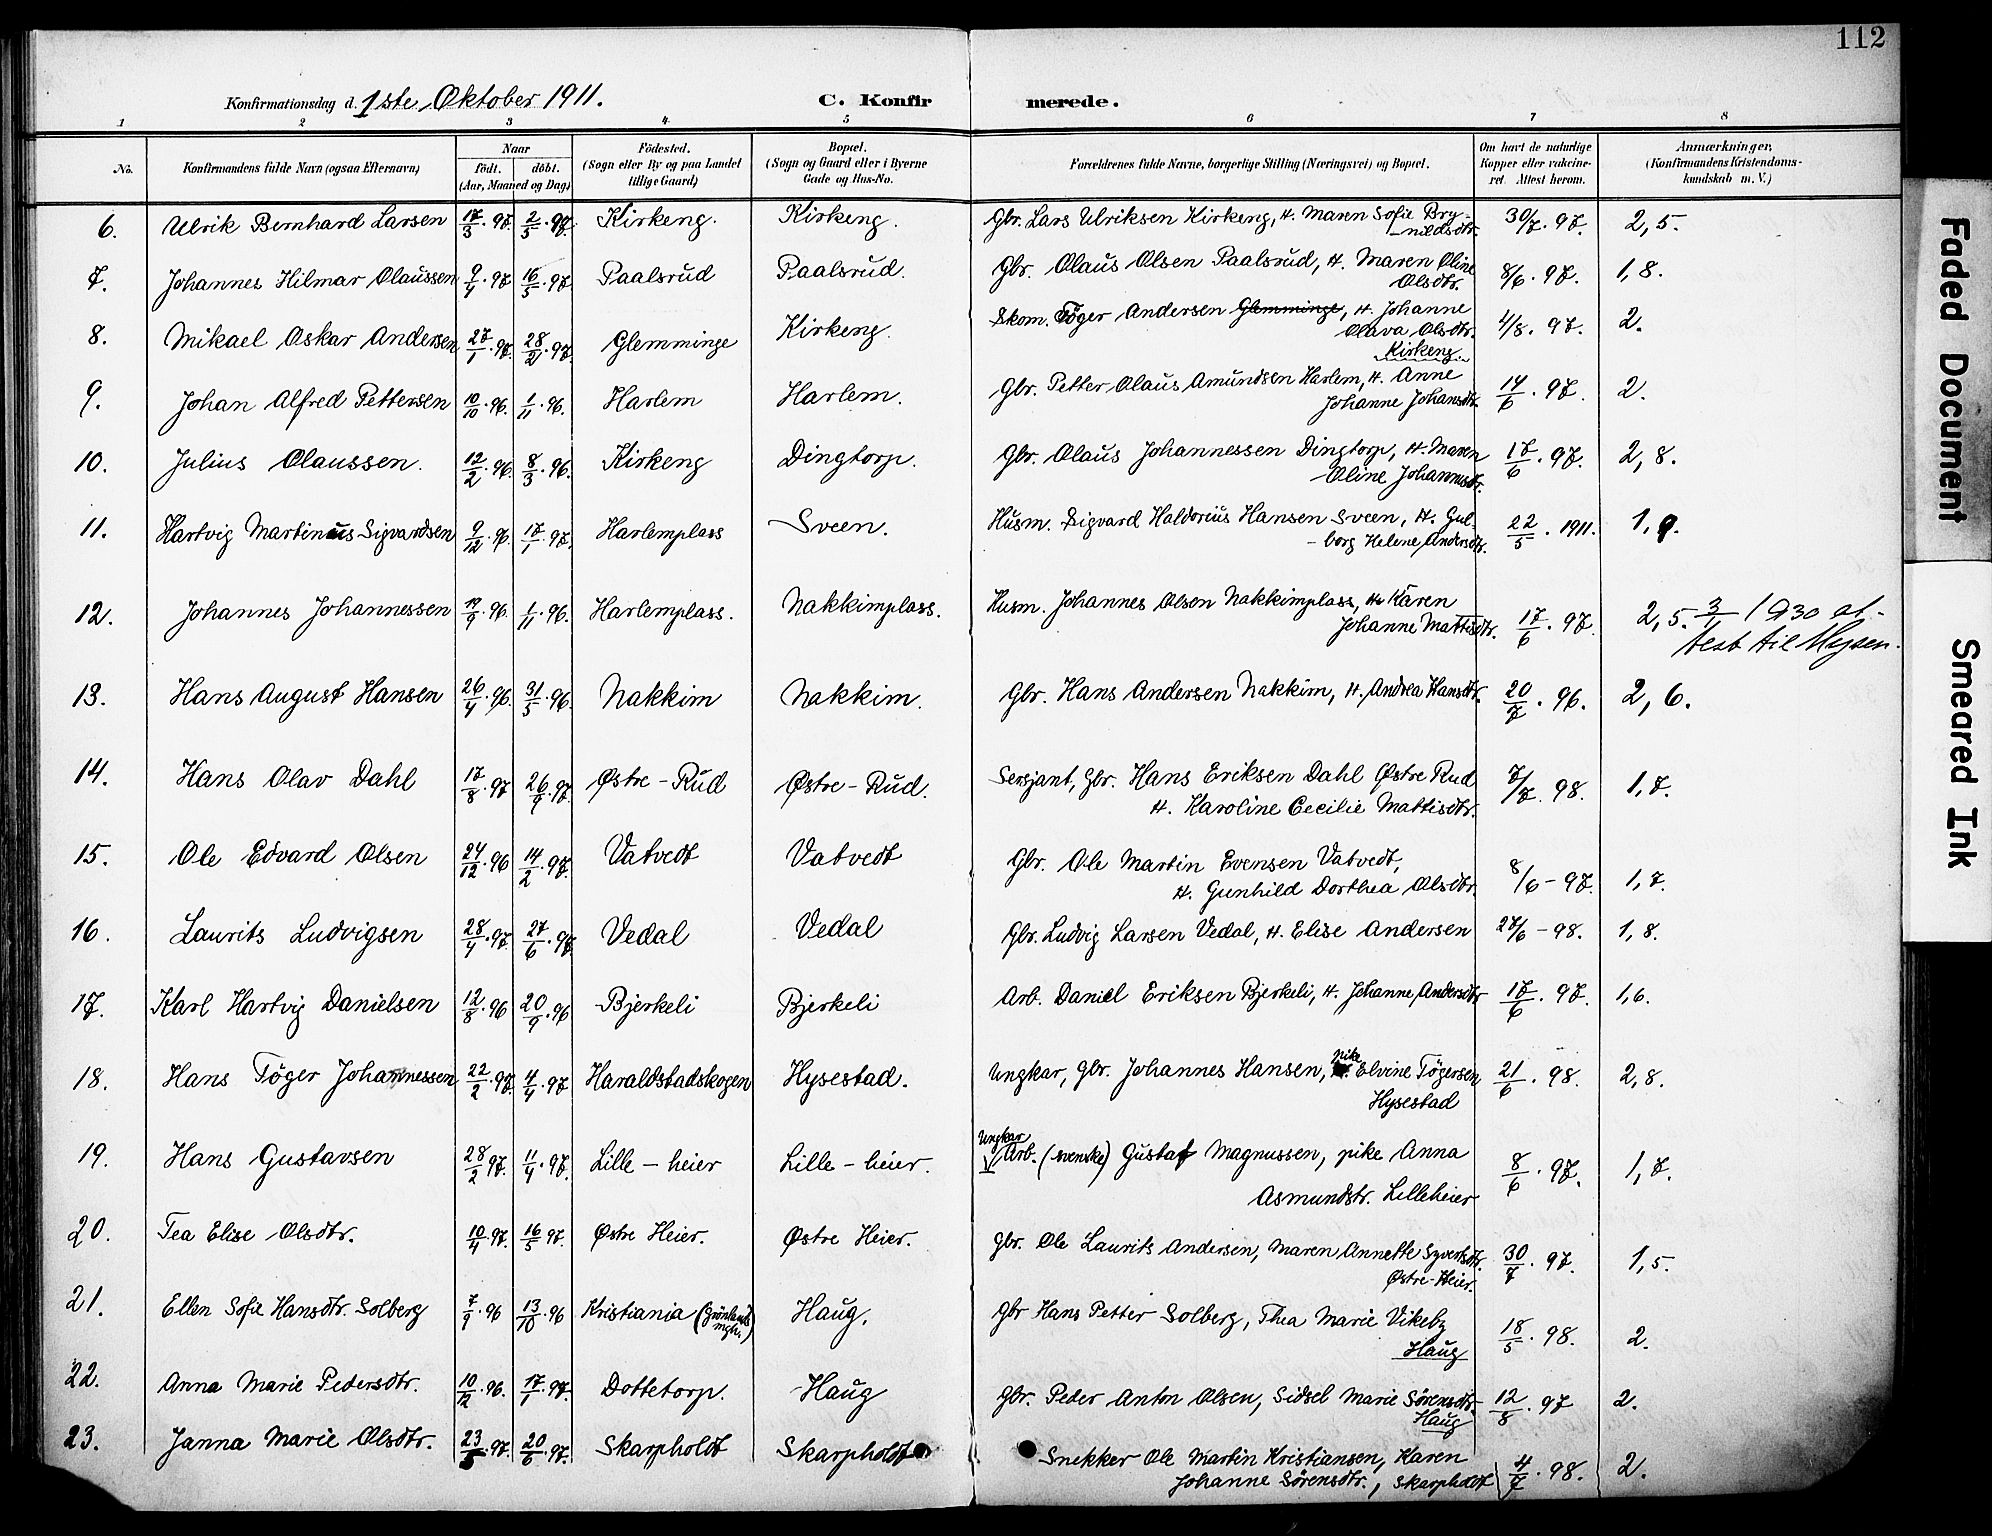 112
Konfirmationsdag d. 1ste Oktober 1911. C. Konfirmerede.
1 2 3 4 5 6 7 8
No. Konfirmandens fulde Navn (ogsaa Efternavn) Naar födt. döbt. (Aar, Maaned og Dag) Födested. (Sogn eller By og paa Landet tillige Gaard) Bopæl. (Sogn og Gaard eller i Byerne Gade og Hus-No. Forældrenes fulde Navne, borgerlige Stilling (Næringsvei) og Bopæl. Om havt de naturlige Kopper eller vakcineret. Attest herom. Anmærkninger, (Konfirmandens Kristendomskundskab m. V.)
6. Ulrik Bernhard Larsen 17/3. 97. 2/5. 97. Kirkeng. Kirkeng. Gbr. Lars Ulriksen Kirkeng, H. Maren Sofie Bry-
nildsdtr. 30/7. 97. 2,5.
7. Johannes Hilmar Olaussen 9/4. 97 16/5. 97. Paalsrud Paalsrud. Gbr. Olaus Olsen Paalsrud, H. Maren Oline
Olsdtr. 8/6. 97. 1,8.
8. Mikael Oskar Andersen 27/1. 97. 28/2. 97. Glemminge Kirkeng. Skom. Töger Andersen Glemminge, H. Johanne
Olava Olsdtr. 4/8. 97. 2.
Kirkeng.
9. Johan Alfred Pettersen 10/10. 96. 1/11. 96. Harlem Harlem. Gbr. Petter Olaus Amundsen Harlem, H. Anne
Johanne Johansdtr. 14/6. 97. 2.
10. Julius Olaussen. 12/2. 96. 8/3. 96. Kirkeng Dingtorp. Gbr. Olaus Johannessen Dingtorp, H. Maren
Oline Johannsdtr. 17/6. 97. 2,8.
11. Hartvig Martinius Sigvardsen 9/12. 96. 17/1. 97. Harlemplass Sveen. Husm. Sigvard Haldorius Hansen Sveen, H. Gul-
borg Helene Andersdtr. 22/5. 1911. 1,9.
12. Johannes Johannessen 19/9. 96. 1/11. 96. Harlemplass. Nakkimplass. Husm. Johannes Olsen Nakkimplass, H. Karen
Johanne Mattisdtr. 17/6. 97. 2,5. 1930 at-
test til Mysen.
13. Hans August Hansen 26/4. 96. 31/5. 96. Nakkim Nakkim. Gbr. Hans Andersen Nakkim, H. Andrea Hansdtr. 20/7. 96. 2,6.
14. Hans Olav Dahl 17/8. 97 26/9. 97. Østre-Rud Østre-Rud. Sersjant, Gbr. Hans Eriksen Dahl Østre Rud
H. Karoline Cecilie Mattisdtr. 7/7. 98. 1,7.
15. Ole Edvard Olsen 24/12. 96 14/2. 97. Vatvedt Vatvedt Gbr. Ole Martin Evensen Vatvedt,
H. Gunhild Dorthea Olsdtr. 8/6 - 97. 1,7.
16. Laurits Ludvigsen 28/4. 97. 27/6. 97. Vedal Vedal Gbr. Ludvig Larsen Vedal, H. Elise Andersen 27/6 - 98. 1,8.
17. Karl Hartvig Danielsen 12/8. 96 20/9. 96 Bjerkeli Bjerkeli Arb. Daniel Eriksen Bjerkeli, H. Johanne Andersdtr 17/6. 97. 1,6.
18. Hans Töger Johannessen 22/2. 97. 4/4. 97 Haraldstadskogen Hysestad. Ungkar, Gbr. Johannes Hansen, Pike Elvine Tögersen
Hysestad 21/6. 98. 2,8.
19. Hans Gustavsen 28/2 97. 11/4. 97. Lille-heier Lille-heier. Ungkar Arb. (svenske) Gustaf Magnussen, pike Anna
Asmundstr. Lilleheier 8/6. 97. 1,7.
20. Tea Elise Olsdtr. 10/4. 97. 16/5 97. Østre Heier. Østre Heier. Gbr. Ole Laurits Andersen, Maren Annette Syvertsdtr.
Østre-Heier. 30/7. 97. 1,5.
21. Ellen Sofie Hansdtr. Solberg 7/9. 96 13/10. 96 Kristiania (Grønlands mgh.) Haug. Gbr Hans Petter Solberg, Thea Marie Vikeby
Haug 18/5. 98. 2.
22. Anna Marie Pedersdtr. 10/12. 96. 17/1. 97. Dottetorp. Haug Gbr. Peder Anton Olsen, Sidsel Marie Sørensdtr.
Haug 12/8. 97 2.
23. Janna Marie Olsdtr. 23/5. 97. 20/6. 97. Skarpholdt Skarpholdt Snekker Ole Martin Kristiansen, Karen
Johanne Sørensdtr., Skarpholdt 4/7. 98. 2.
Faded Document
Smeared Ink